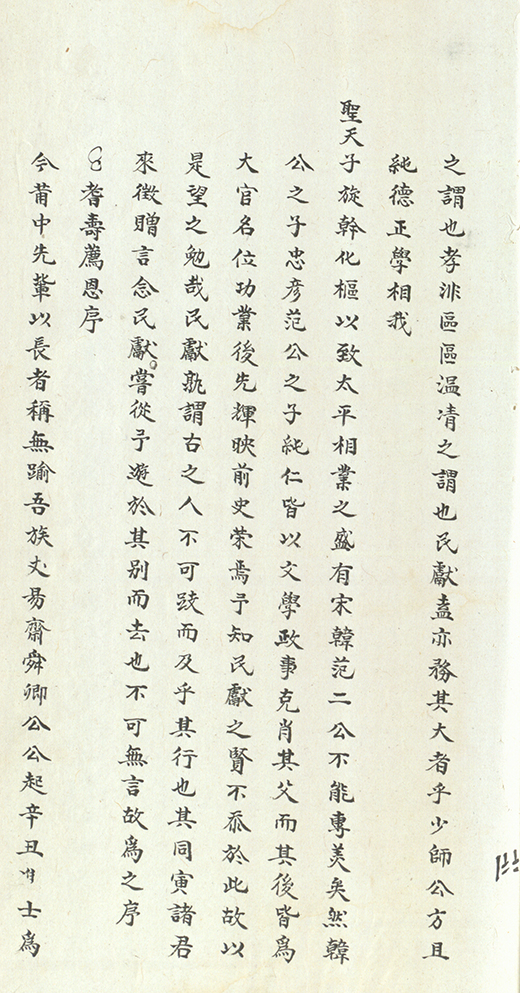 之謂也孝非區區温凊之謂也民獻盍亦務其大者乎少師公方且
純德正學相我
聖天子旋斡化樞以致太平相業之盛有宋韓范二公不能專美矣然韓
公之子忠彦范公之子純仁皆以文學政事克肖其父而其後皆爲
大官名位功業後先輝映前史荣焉予知民獻之賢不忝於此故以
是望之勉哉民獻孰謂古之人不可跂而及乎其行也其同寅諸君
來徵贈言念民獻嘗從予遊於其别而去也不可無言故爲之序
耆壽薦恩序
今莆中先軰以長者稱無踰吾族丈易齋舜卿公公起辛丑士爲